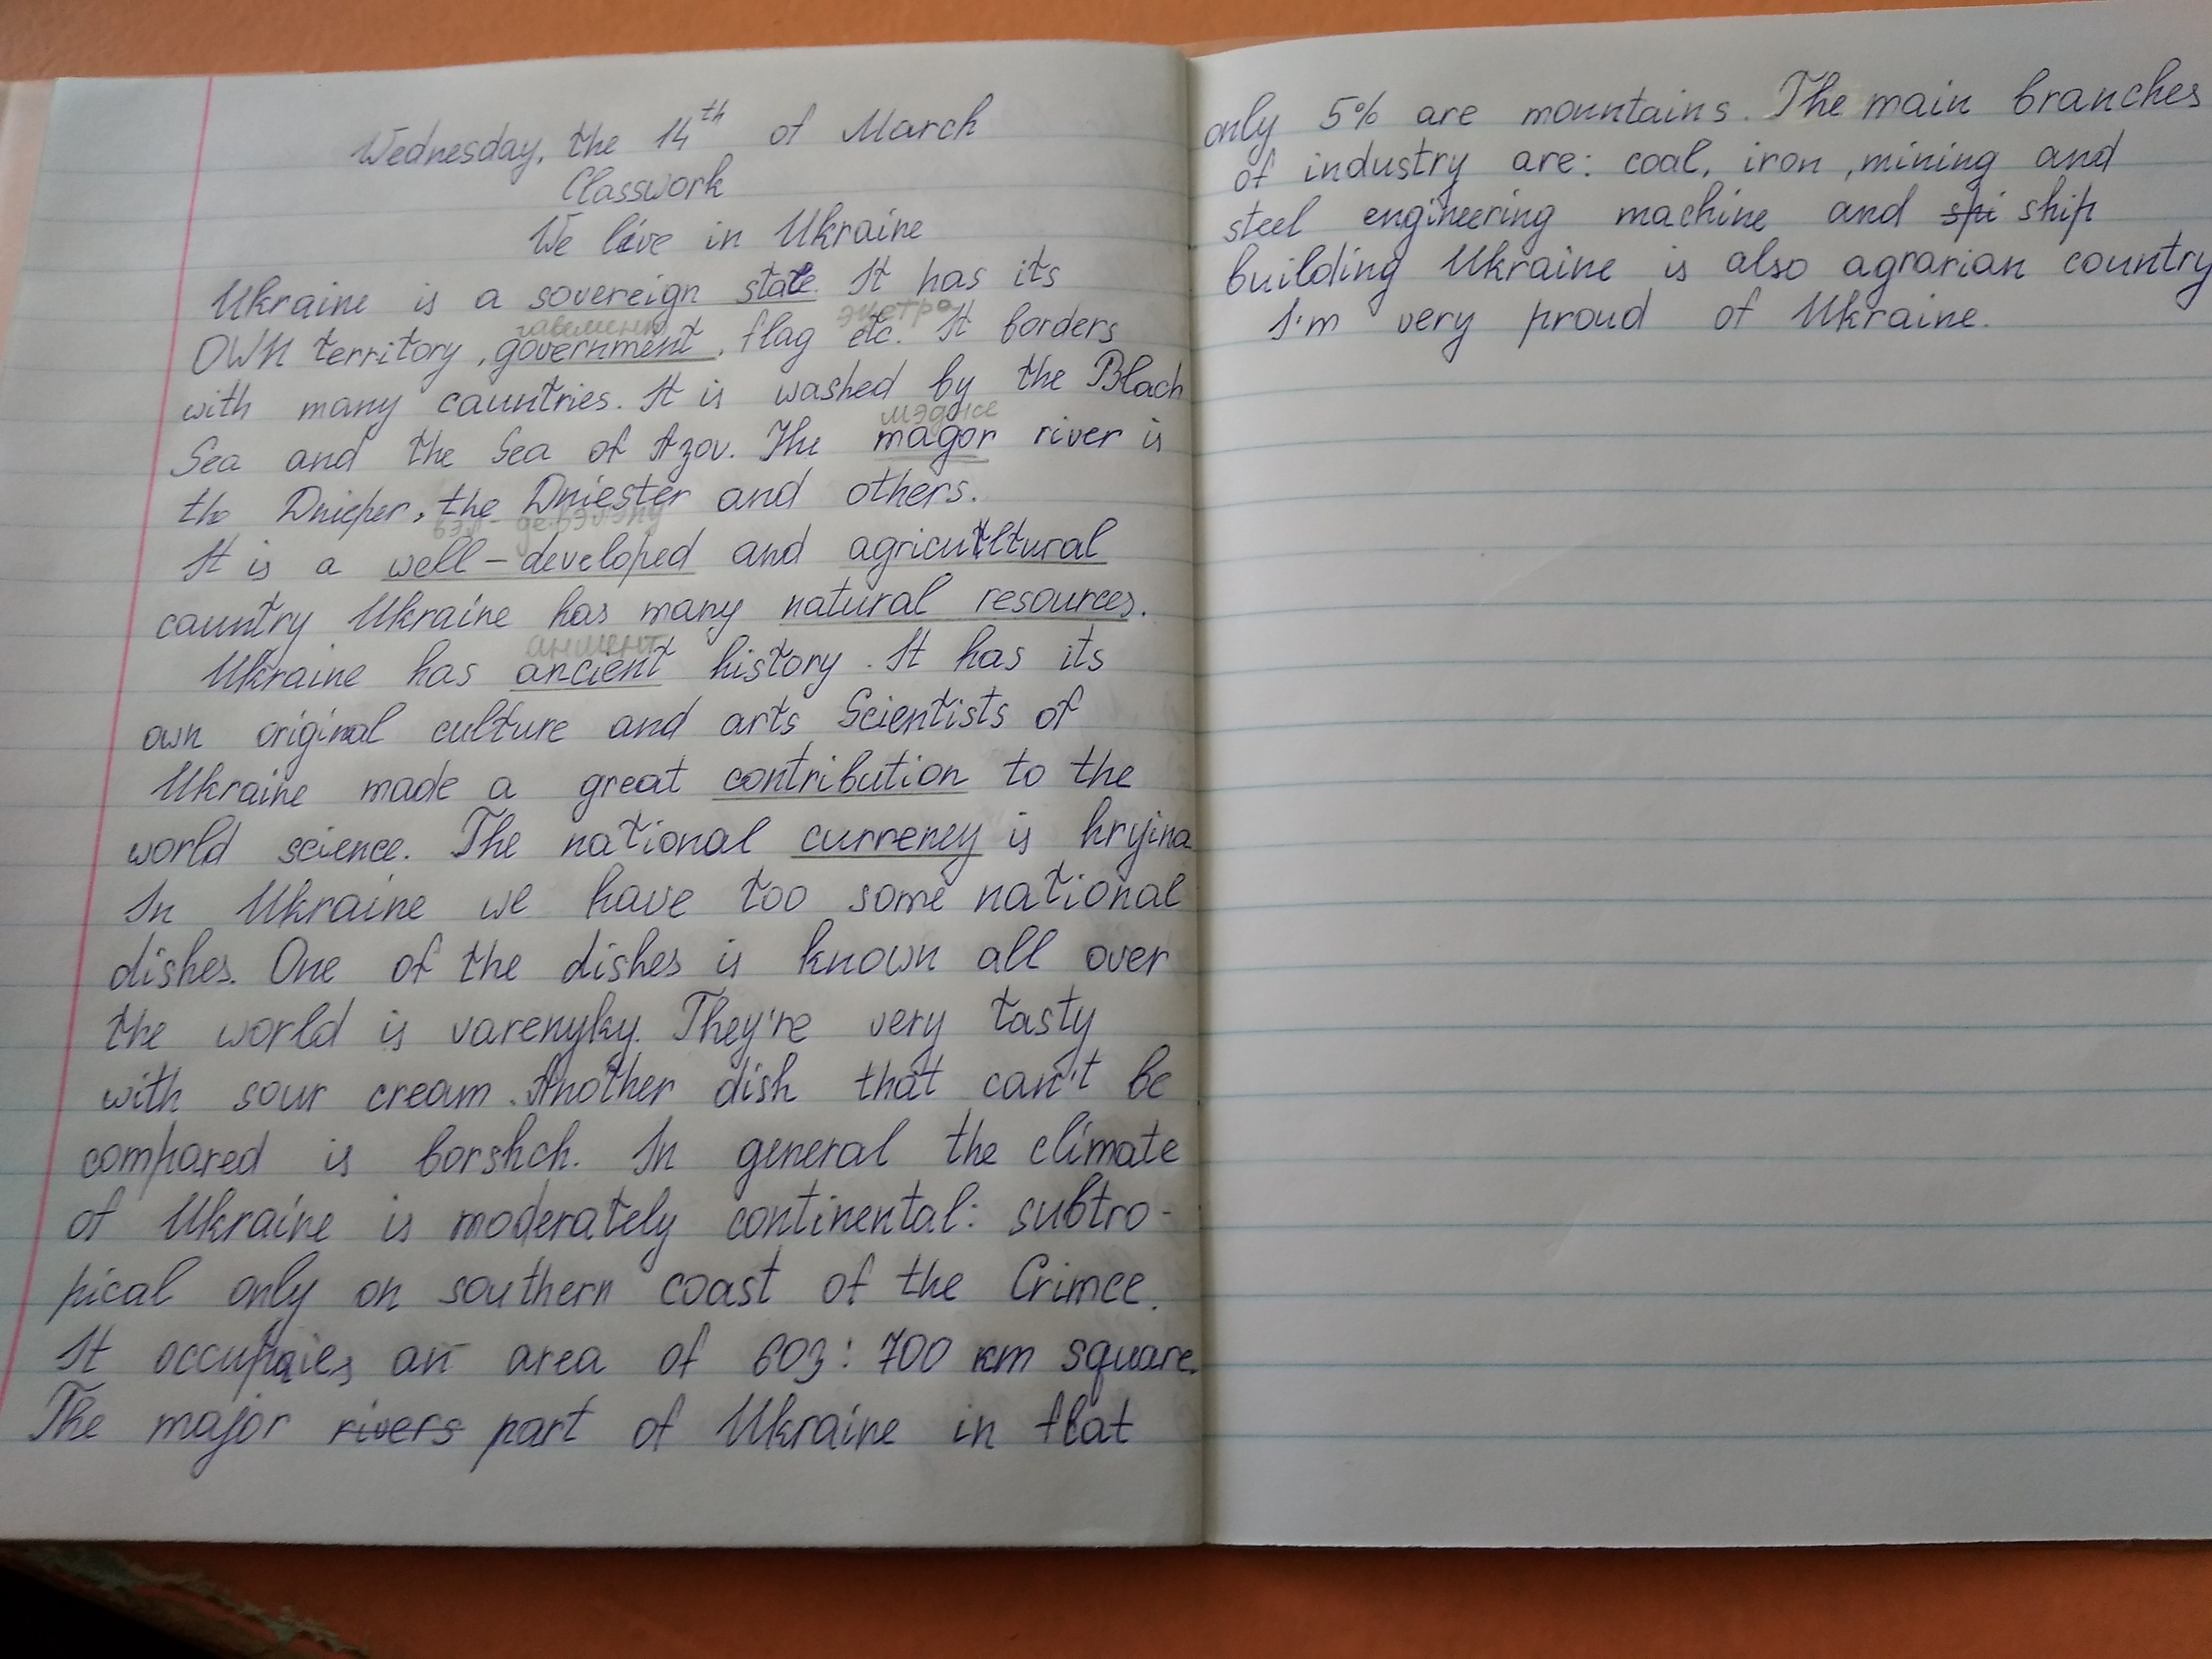 Wednesday, the 14th of March
Classwork
We live in Ukraine
Ukraine is a sovereign state. It has its
экстро
гавемент
OWN territory, government, flag etc. It borders
with many cauntries. It is washed by the Blach
мэджсе
Sea and the Sea of Azov. The magor river is
the Dnieper, the Dniester and others.
вэл-девэлэпу
It is a well-developed and agricultltural
cauntry Ukraine has many natural resources.
аншент
Ukraine has ancient history. It has its
own original culture and arts Scientists of
Ukraine made a great contribution to the
world science. The national currency is hryina
In Ukraine we have too some national
dishes. One of the dishes is known all over
the world is varenyky. They're very tasty
with sour cream. Another dish that can't be
compared is borshch. In general the climate
of Ukraine is moderately continental: subtro-
pical only on southern coast of the Crimee.
It occupaies an area of 603:700 km square.
The major rivers part of Ukraine in flat
only 5% are mountains. The main branches
of industry are: coal, iron, mining and
steel engineering machine and shi ship
building Ukraine is also agrarian country
I'm very proud of Ukraine.